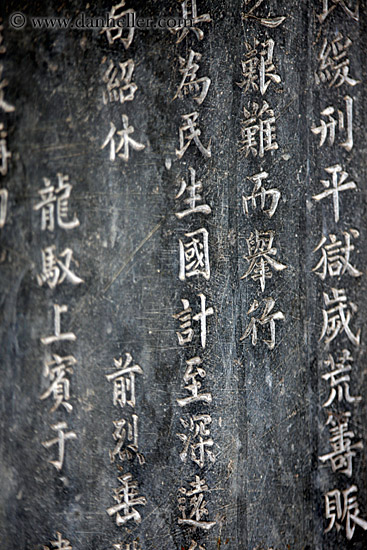 © www.danheller.com
民緩刑平獄歲荒籌賑
之艱難而舉竹
其為民生國計至深遠
紹休 前烈垂
龍馭上賓于